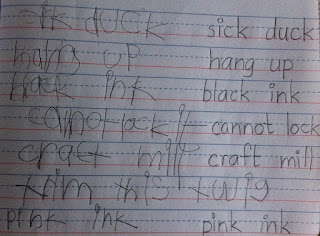 ck duck sick duck
hang up hang up
black ink black ink
cannot lock it cannot lock
craft mill craft mill
trim this twig
pink ink pink ink